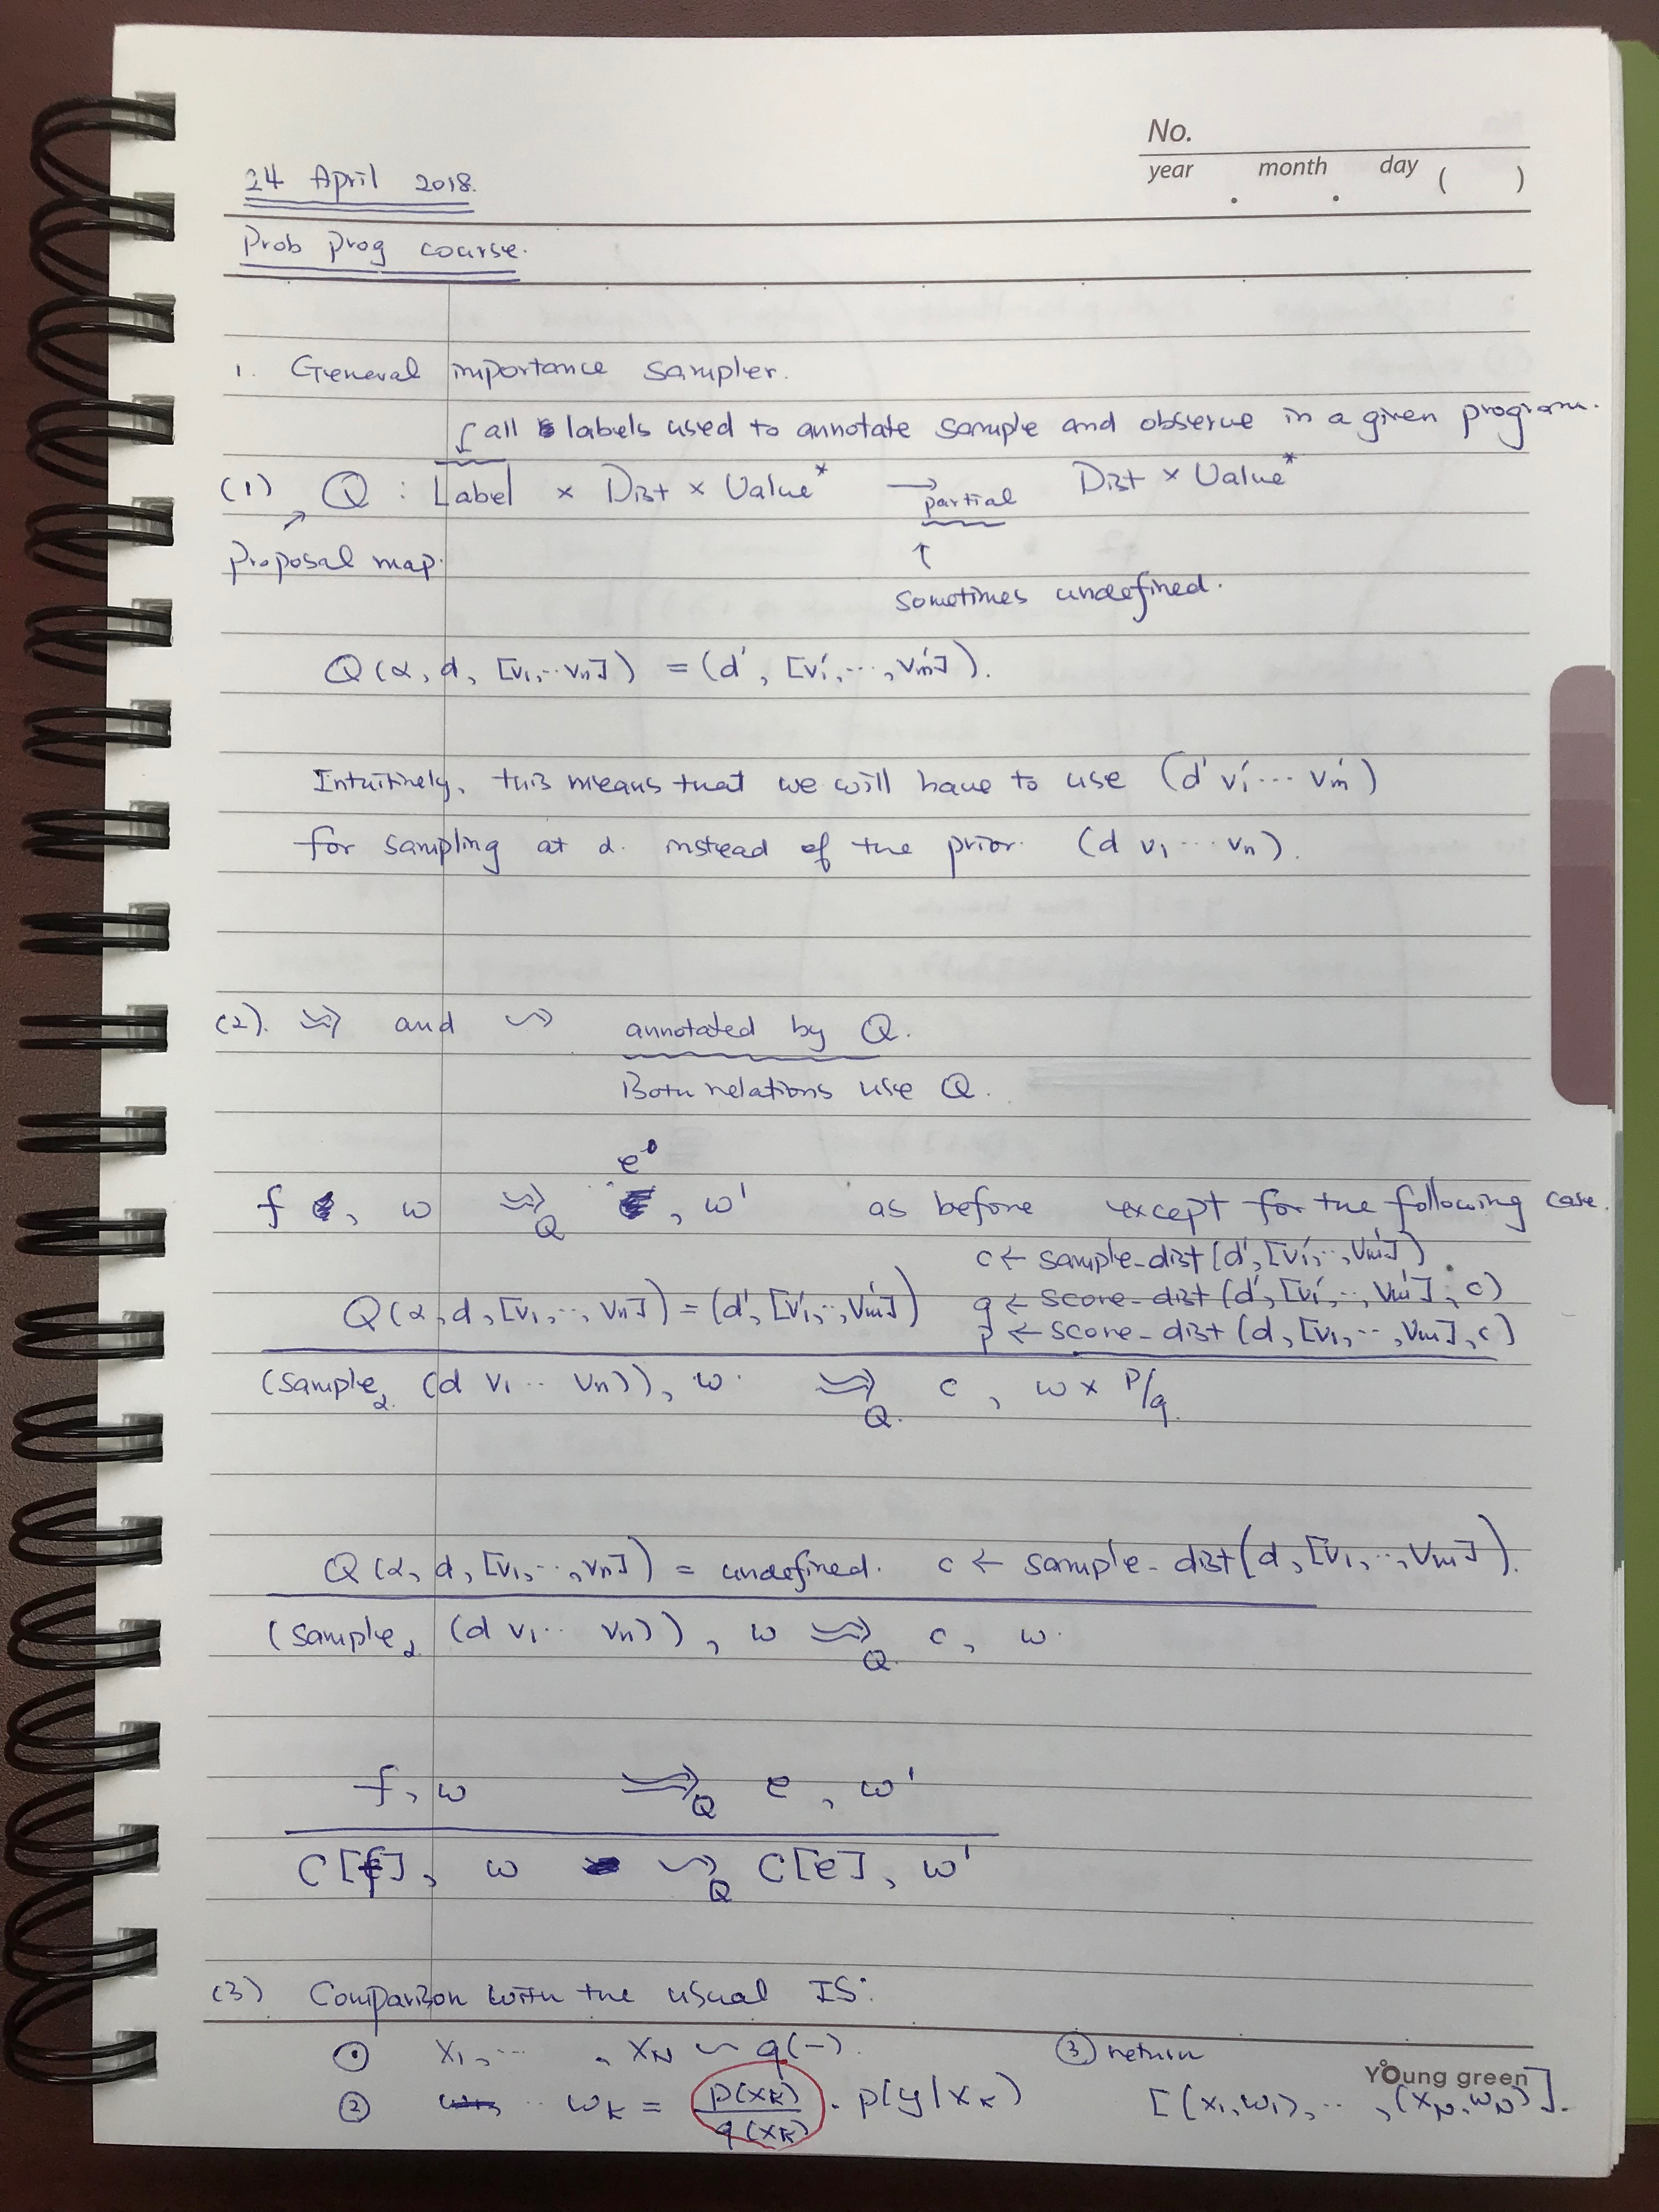 No.
year . month . day ( )
24 April 2018.
Prob prog course.
1. General importance sampler.
all labels used to annotate sample and observe in a given program.
(1) Q : Label × Dist × Value* → Dist × Value*
partial
↑
proposal map.
sometimes undefined.
Q(α, d, [v₁,··vₙ]) = (d', [v₁',···,vₘ']).
Intuitively, this means that we will have to use (d' v₁' ··· vₘ')
for sampling at α. instead of the prior. (d v₁ ··· vₙ).
(2). ⇝ and ↝ annotated by Q.
Both relations use Q.
e
f , w ⇝Q , w' as before except for the following case.
c ← sample-dist(d', [v₁',··,vₘ'])
Q(α, d, [v₁,··, vₙ]) = (d', [v₁',··,vₘ']) q ← score-dist(d', [v₁',··, vₘ'], c)
p ← score-dist(d, [v₁,··,vₘ], c)
(sampleα (d v₁ ·· vₙ)), w ⇝Q c, w × p/q
Q(α, d, [v₁,··,vₙ]) = undefined. c ← sample-dist(d, [v₁,··,vₘ]).
(sampleα (d v₁ ·· vₙ)), w ⇝Q c, w.
f, w ⇝Q e, w'
C[f], w ↝Q C[e], w'
(3) Comparison with the usual IS:
① x₁, ··· , x_N ∽ q(−). ③ return
② w_k = p(x_k)/q(x_k) · p(y|x_k) [(x₁,w₁),··,(x_N,w_N)].
Young green